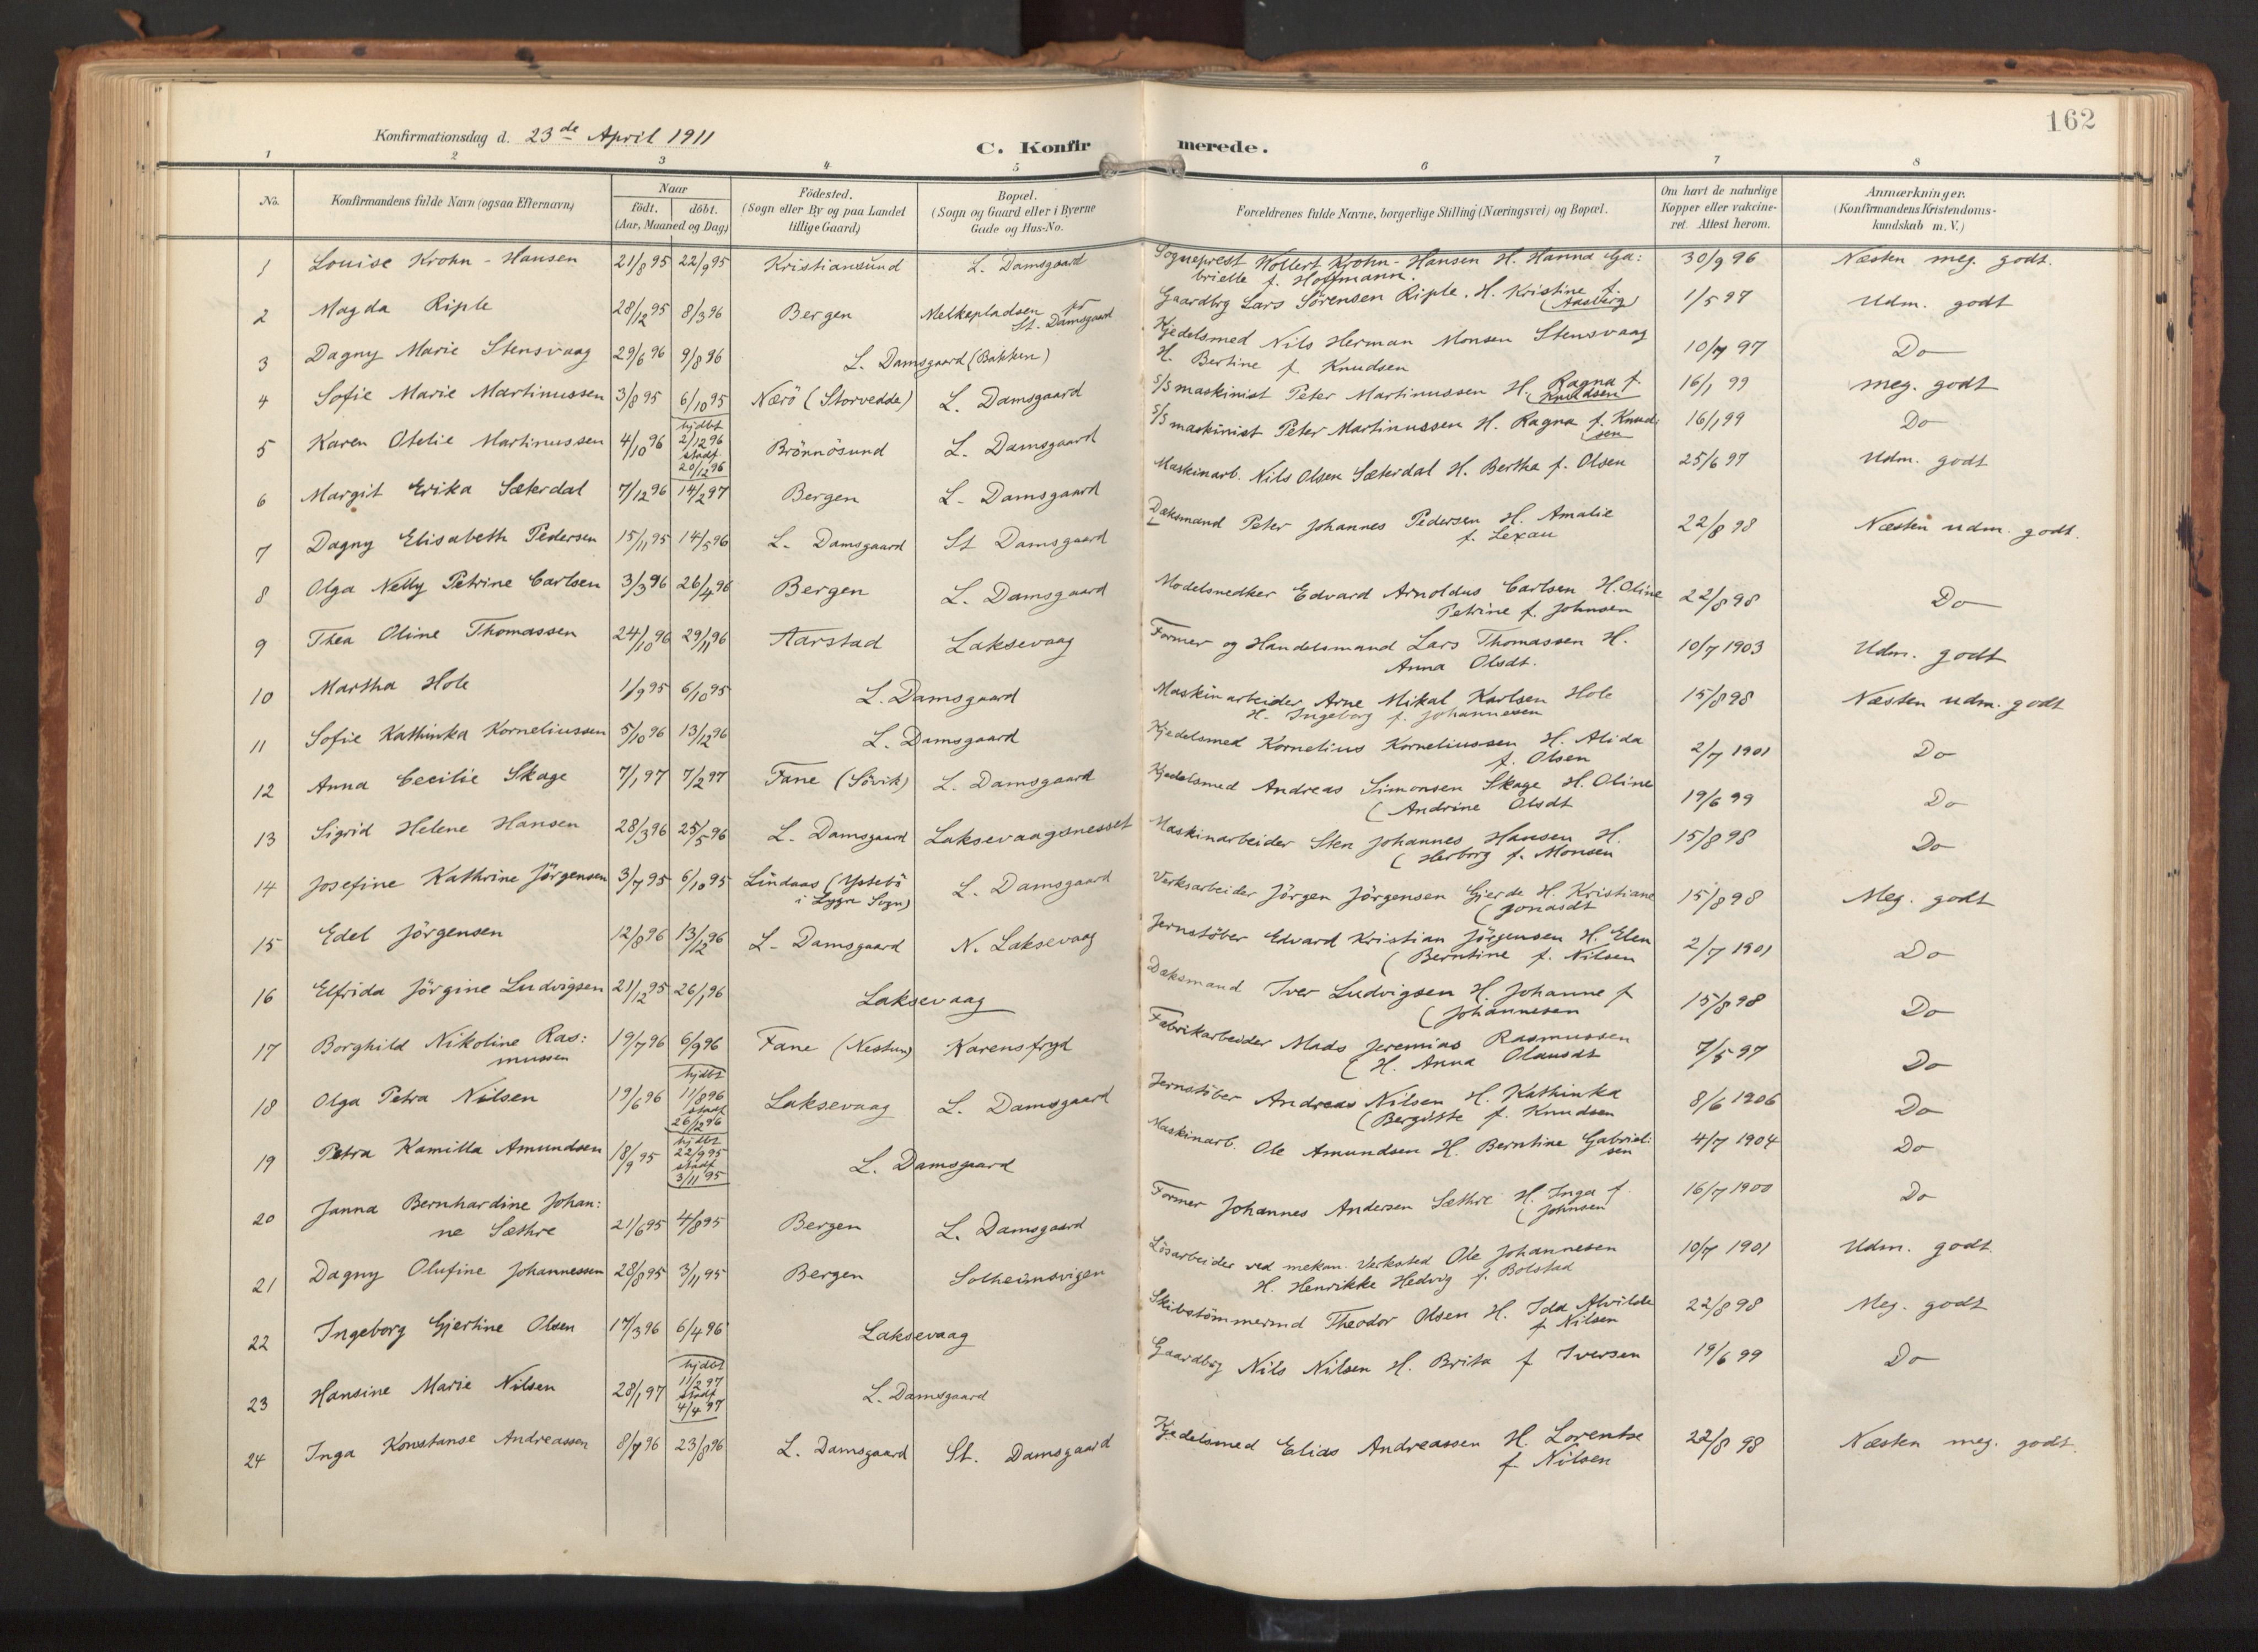 162
Konfirmationsdag d. 23de April 1911
C. Konfirmerede.
1 2 3 4 5 6 7 8
No. Konfirmandens fulde Navn (ogsaa Efternavn) Naar födt. döbt. (Aar, Maaned og Dag) Födested. (Sogn eller By og paa Landet tillige Gaard) Bopæl. (Sogn og Gaard eller i Byerne Gade og Hus-No. Forældrenes fulde Navne, borgerlige Stilling (Næringsvei) og Bopæl. Om havt de naturlige Kopper eller vakcineret. Attest herom. Anmærkninger. (Konfirmandens Kristendomskundskab m. V.)
1 Louise Krohn-Hansen 21/8 95 22/9 95 Kristiansund L. Damsgaard Sogneprest Wollert Krohn-Hansen H. Hanna Ga:
brielle f. Hoffmann. 30/9 96 Næsten meg. godt.
2 Magda Riple 28/12 95 8/3 96 Bergen Melkepladsen pr
St. Damsgaard Gaardbrg Lars Sörensen Riple. H. Kristine f.
(Aasberg) 1/5 97 Udm. godt
3 Dagny Marie Stensvaag 29/6 96 9/8 96 L. Damsgaard (Bakken) Kjedelsmed Nils Herman Monsen Stensvaag
H. Bertine f. Knudsen 10/7 97 Do
4 Sofie Marie Martinussen 3/8 95 6/10 95 Nærö (Storvedde) L. Damsgaard S/S maskinist Peter Martinussen H. Ragna f.
(Knudsen 16/1 99 meg. godt
5 Karen Otelie Martinussen 4/10 96 hjdbt
2/12 96
stadf.
20/12 96 Brönnösund L. Damsgaard S/S maskinist Peter Martinussen H. Ragna f. Knud:
sen 16/1 99 Do
6 Margit Erika Sæterdal 7/12 96 14/2 97 Bergen L. Damsgaard Maskinarb. Nils Olsen Sæterdal H. Bertha f. Olsen 25/6 97 Udm. godt
7 Dagny Elisabeth Pedersen 15/11 95 14/5 96 L. Damsgaard St Damsgaard Dæksmand Peter Johannes Pedersen H. Amalie
f. Lexau 22/8 98 Næsten udm. godt.
8 Olga Nelly Petrine Carlsen 3/3 96 26/4 96 Bergen L. Damsgaard Modelsnedker Edvard Arnoldus Carlsen H. Oline
Petrine f. Johnsen 22/8 98 Do
9 Thea Oline Thomassen 24/10 96 29/11 96 Aarstad Laksevaag Former og Handelsmand Lars Thomassen H.
Anna Olsdt. 10/7 1903 Udm. godt
10 Martha Hole 1/9 95 6/10 95 L. Damsgaard Maskinarbeider Arne Mikal Karlsen Hole
H. Ingeborg f. Johannesen 15/8 98 Næsten udm. godt
11 Sofie Kathinka Korneliussen 5/10 96 13/12 96 L. Damsgaard Kjedelsmed Kornelius Korneliussen H. Alida
f. Olsen 2/7 1901 Do
12 Anna Cecilie Skage 7/1 97 7/2 97 Fane (Sövik) L. Damsgaard Kjedelsmed Andreas Simonsen Skage H. Oline
(Andrine Olsdt 19/6 99 Do
13 Sigrid Helene Hansen 28/3 96 25/5 96 L. Damsgaard Laksevaagsnesset Maskinarbeider Sten Johannes Hansen H.
(Herborg f. Monsen 15/8 98 Do
14 Josefine Kathrine Jörgensen 3/7 95 6/10 95 Lindaas (Ystebö
i Lygre Sogn) L. Damsgaard Verksarbeider Jörgen Jörgensen Gjerde H. Kristiane
(Jonasdt 15/8 98 Meg. godt
15 Edel Jörgensen 12/8 96 13/12 96 L. Damsgaard N. Laksevaag Jernstöber Edvard Kristian Jörgensen H. Elen
(Berntine f. Nilsen 2/7 1901 Do
16 Elfrida Jörgine Ludvigsen 21/12 95 26/1 96 Laksevaag Dæksmand Iver Ludvigsen H. Johanne f
(Johannesen 15/8 98 Do
17 Borghild Nikoline Ras:
mussen 19/7 96 6/9 96 Fane (Nestun) Karensfryd Fabrikarbeider Mads Jeremias Rasmussen
(H. Anna Olausdt 7/5 97 Do
18 Olga Petra Nilsen 19/6 96 hjdbt
11/8 96
stadf
26/12 96 Laksevaag L. Damsgaard Jernstöber Andreas Nilsen H. Kathinka
(Bergitte f. Knudsen 8/6 1906 Do
19 Petra Kamilla Amundsen 18/9 95 hjdbt
22/9 95
stadf
3/11 95 L. Damsgaard Maskinarb. Ole Amundsen H. Berntine Gabriel:
sen 4/7 1904 Do
20 Janna Bernhardine Johan:
ne Sæthre 21/6 95 4/8 95 Bergen L. Damsgaard Former Johannes Andersen Sæthre H. Inga f.
(Johnsen 16/7 1900 Do
21 Dagny Olufine Johannessen 28/8 95 3/11 95 Bergen Solheimsvigen Lösarbeider ved mekan. Verksted Ole Johannesen
H. Henrikke Hedvig f. Bolstad 10/7 1901 Udm. godt.
22 Ingeborg Gjertine Olsen 17/3 96 6/4 96 Laksevaag Skibstömmermd Theodor Olsen H. Ida Alvilde
f. Nilsen 22/8 98 Meg. godt
23 Hansine Marie Nilsen 28/1 97 hjdbt
11/2 97
stadf
4/4 97 L. Damsgaard Gaardbrg Nils Nilsen H. Brita f Iversen 19/6 99 Do
24 Inga Konstanse Andreassen 8/7 96 23/8 96 L. Damsgaard St. Damsgaard Kjedelsmed Elias Andreassen H. Lorentse
f. Nilsen 22/8 98 Næsten meg. godt.